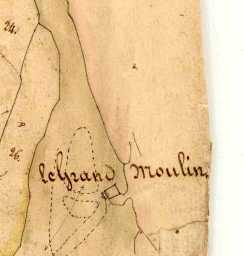 24.
26.
le Grand Moulin.